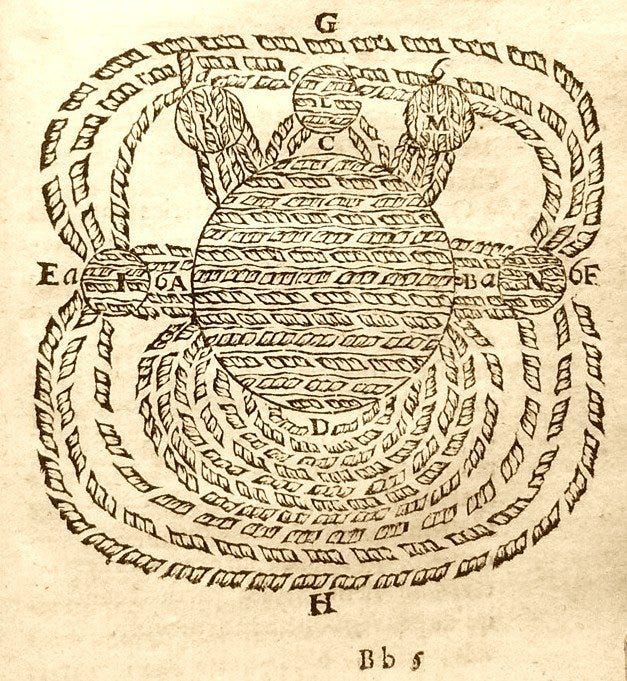 G
a b b
L M
C
E a I b A B a N b F
D
H
B b 5